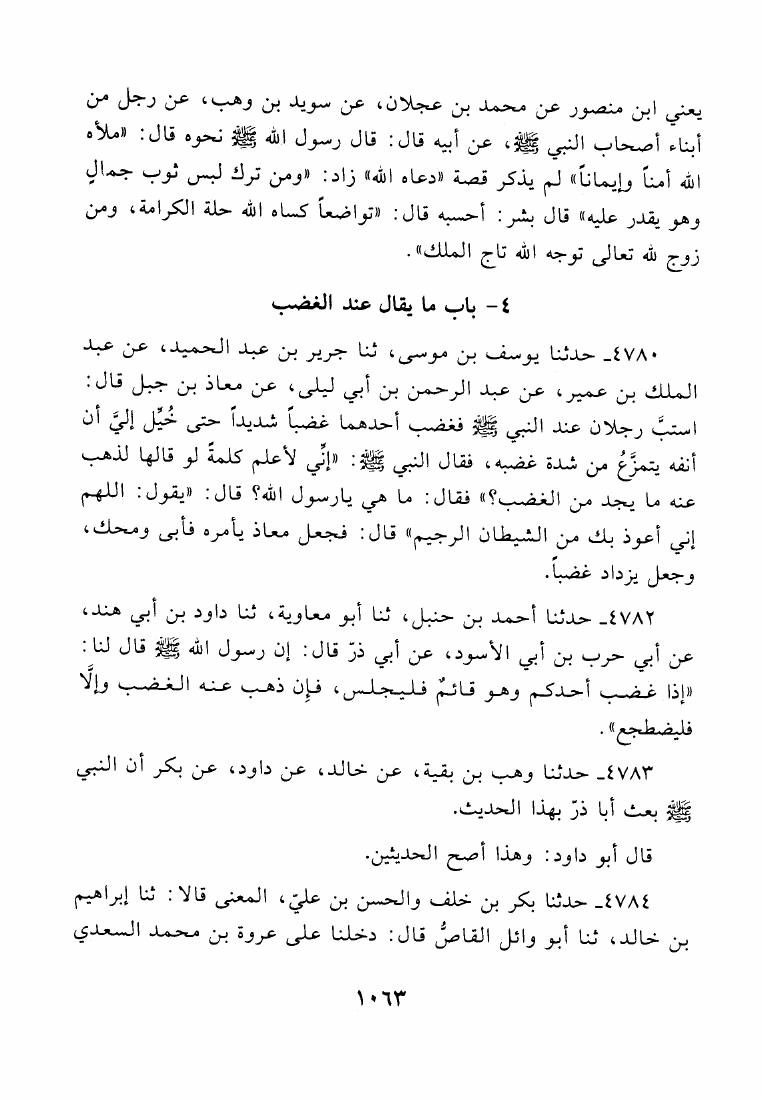 يعني ابن منصور عن محمد بن عجلان، عن سويد بن وهب، عن رجل من
أبناء أصحاب النبي ﷺ، عن أبيه قال: قال رسول الله ﷺ نحوه قال: «ملأه
الله أمناً وإيماناً» لم يذكر قصة «دعاه الله» زاد: «ومن ترك لبس ثوب جمالٍ
وهو يقدر عليه» قال بشر: أحسبه قال: «تواضعاً كساه الله حلة الكرامة، ومن
زوج لله تعالى توجه الله تاج الملك».
٤- باب ما يقال عند الغضب
٤٧٨٠ـ حدثنا يوسف بن موسى، ثنا جرير بن عبد الحميد، عن عبد
الملك بن عمير، عن عبد الرحمن بن أبي ليلى، عن معاذ بن جبل قال:
استبَّ رجلان عند النبي ﷺ فغضب أحدهما غضباً شديداً حتى خُيِّل إليَّ أن
أنفه يتمزَّعُ من شدة غضبه، فقال النبي ﷺ: «إنِّي لأعلم كلمةً لو قالها لذهب
عنه ما يجد من الغضب؟» فقال: ما هي يارسول الله؟ قال: «يقول: اللهم
إني أعوذ بك من الشيطان الرجيم» قال: فجعل معاذ يأمره فأبى ومحك،
وجعل يزداد غضباً.
٤٧٨٢ـ حدثنا أحمد بن حنبل، ثنا أبو معاوية، ثنا داود بن أبي هند،
عن أبي حرب بن أبي الأسود، عن أبي ذرّ قال: إن رسول الله ﷺ قال لنا:
«إذا غضب أحدكم وهو قائمٌ فليجلس، فإن ذهب عنه الغضب وإلَّا
فليضطجع».
٤٧٨٣ـ حدثنا وهب بن بقية، عن خالد، عن داود، عن بكر أن النبي
ﷺ بعث أبا ذرّ بهذا الحديث.
قال أبو داود: وهذا أصح الحديثين.
٤٧٨٤ـ حدثنا بكر بن خلف والحسن بن عليّ، المعنى قالا: ثنا إبراهيم
بن خالد، ثنا أبو وائل القاصُّ قال: دخلنا على عروة بن محمد السعدي
١٠٦٣